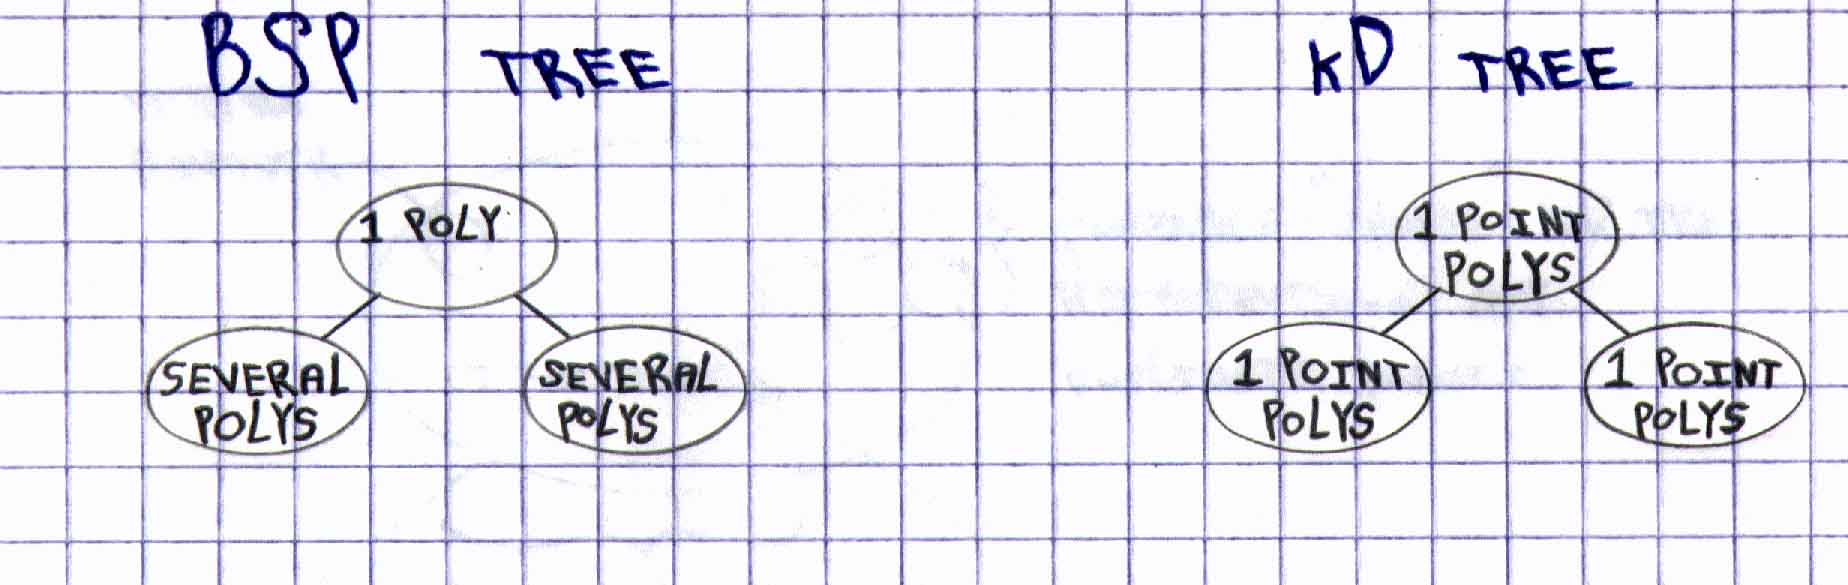 BSP TREE
kD TREE
1 POLY
SEVERAL
POLYS
SEVERAL
POLYS
1 POINT
POLYS
1 POINT
POLYS
1 POINT
POLYS